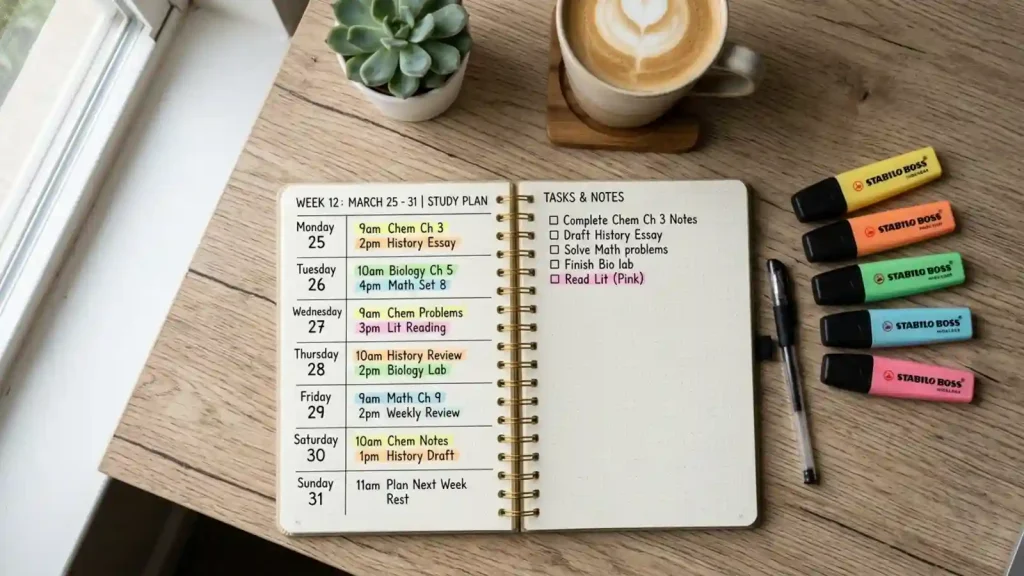 WEEK 12: MARCH 25 - 31 | STUDY PLAN
Monday
25
9am Chem Ch 3
2pm History Essay
Tuesday
26
10am Biology Ch 5
4pm Math Set 8
Wednesday
27
9am Chem Problems
3pm Lit Reading
Thursday
28
10am History Review
2pm Biology Lab
Friday
29
9am Math Ch 9
2pm Weekly Review
Saturday
30
10am Chem Notes
1pm History Draft
Sunday
31
11am Plan Next Week
Rest
TASKS & NOTES
Complete Chem Ch 3 Notes
Draft History Essay
Solve Math problems
Finish Bio lab
Read Lit (Pink)
STABILO BOSS
STABILO BOSS
STABILO BOSS
STABILO BOSS
STABILO BOSS